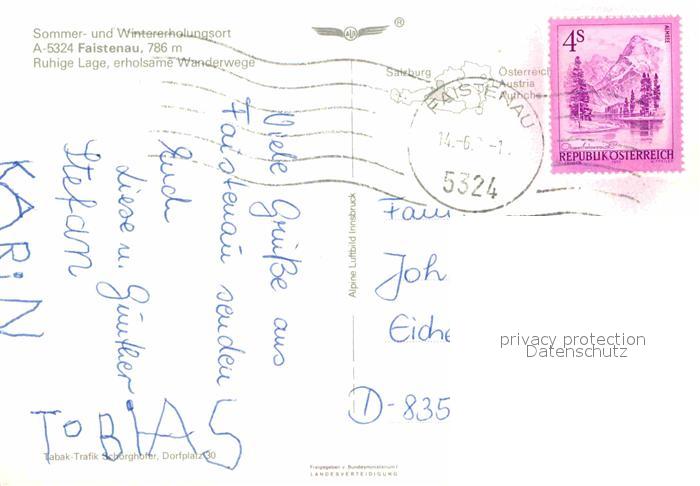 Sommer- und Wintererholungsort
A-5324 Faistenau, 786 m
Ruhige Lage, erholsame Wanderwege
AL
®
Salzburg
Österreich
Austria
Autriche
FAISTENAU
14.-6.
5324
4S
ALMSEE
REPUBLIK ÖSTERREICH
Viele Grüße aus
Faistenau senden
Euch
Liese u. Günther
Stefan
KARiN
TOBiAS
Alpine Luftbild Innsbruck
Fam
Joh
Eiche
D-835
privacy protection
Datenschutz
Tabak-Trafik Schörghofer, Dorfplatz 30
Freigegeben v. Bundesministerium f.
LANDESVERTEIDIGUNG